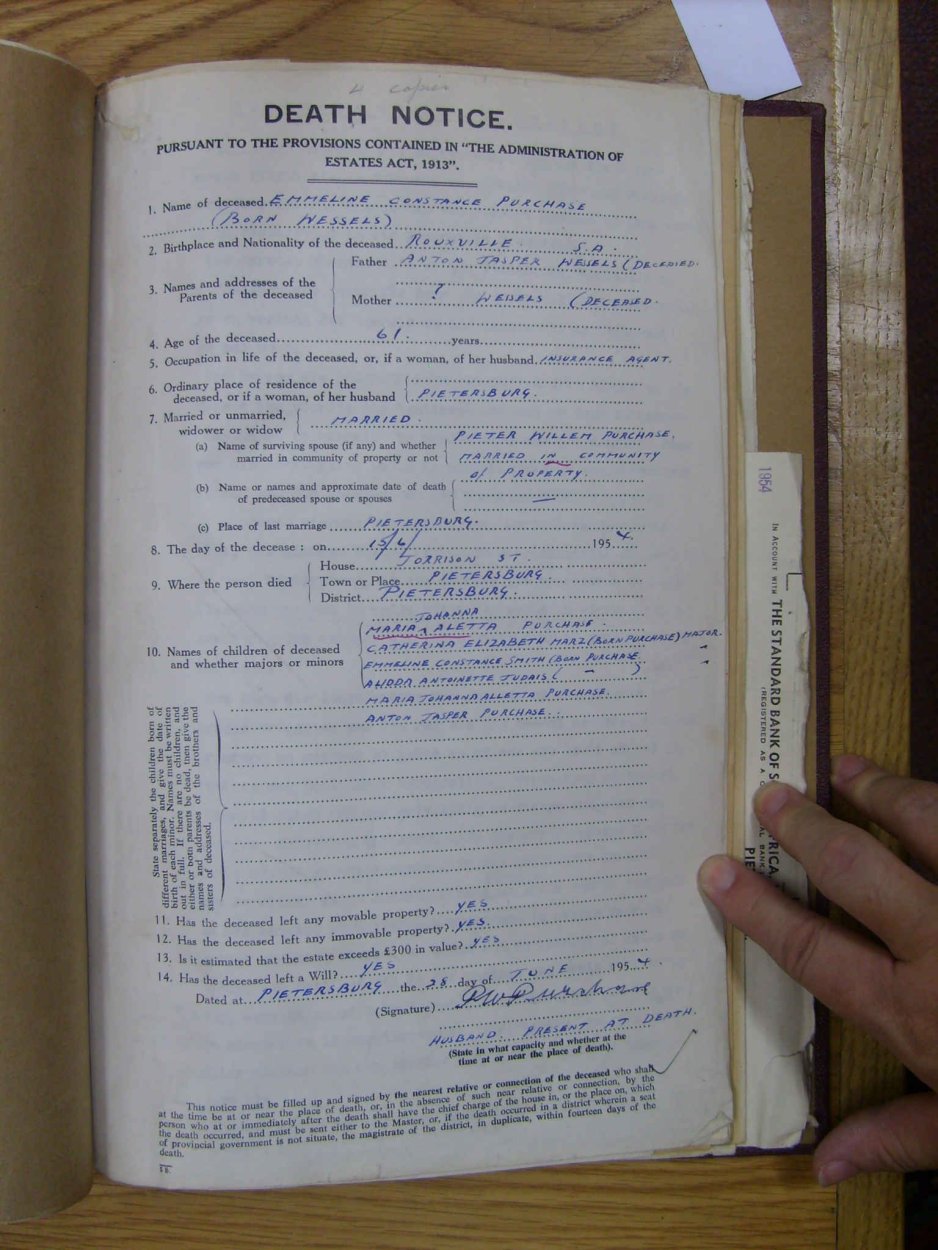 4 copies
DEATH NOTICE.
PURSUANT TO THE PROVISIONS CONTAINED IN "THE ADMINISTRATION OF
ESTATES ACT, 1913".
1. Name of deceased EMMELINE CONSTANCE PURCHASE
(BORN WESSELS)
2. Birthplace and Nationality of the deceased ROUXVILLE. S.A.
3. Names and addresses of the Parents of the deceased
Father ANTON JASPER WESSELS (DECEASED.
Mother ? WESSELS (DECEASED.
4. Age of the deceased 61. years
5. Occupation in life of the deceased, or, if a woman, of her husband INSURANCE AGENT.
6. Ordinary place of residence of the
deceased, or if a woman, of her husband PIETERSBURG.
7. Married or unmarried, widower or widow MARRIED.
(a) Name of surviving spouse (if any) and whether PIETER WILLEM PURCHASE,
married in community of property or not MARRIED IN COMMUNITY
of PROPERTY.
(b) Name or names and approximate date of death
of predeceased spouse or spouses —
(c) Place of last marriage PIETERSBURG.
8. The day of the decease : on 15/6/ 1954.
9. Where the person died
House JORRISON ST.
Town or Place PIETERSBURG.
District PIETERSBURG.
10. Names of children of deceased
and whether majors or minors
JOHANNA
MARIA ALETTA PURCHASE.
CATHERINA ELIZABETH MARZ (BORN PURCHASE) MAJOR.
EMMELINE CONSTANCE SMITH (BORN PURCHASE "
ALIDDA ANTOINETTE JUDAIS ( — ) "
MARIA JOHANNA ALLETTA PURCHASE
ANTON JASPER PURCHASE.
State separately the children born of
different marriages, and give the date of
birth of each minor. Names must be written
out in full. If there are no children, and
either or both parents be dead, then give the
names and addresses of the brothers and
sisters of deceased.
11. Has the deceased left any movable property? YES
12. Has the deceased left any immovable property? YES.
13. Is it estimated that the estate exceeds £300 in value? YES
14. Has the deceased left a Will? YES
Dated at PIETERSBURG the 28 day of JUNE 1954.
(Signature) PWPurchase
HUSBAND. PRESENT AT DEATH.
(State in what capacity and whether at the
time at or near the place of death).
This notice must be filled up and signed by the nearest relative or connection of the deceased who shall
at the time be at or near the place of death, or, in the absence of such near relative or connection, by the
person who at or immediately after the death shall have the chief charge of the house in, or the place on, which
the death occurred, and must be sent either to the Master, or, if the death occurred in a district wherein a seat
of provincial government is not situate, the magistrate of the district, in duplicate, within fourteen days of the
death.
1954
IN ACCOUNT WITH THE STANDARD BANK OF
(REGISTERED AS A